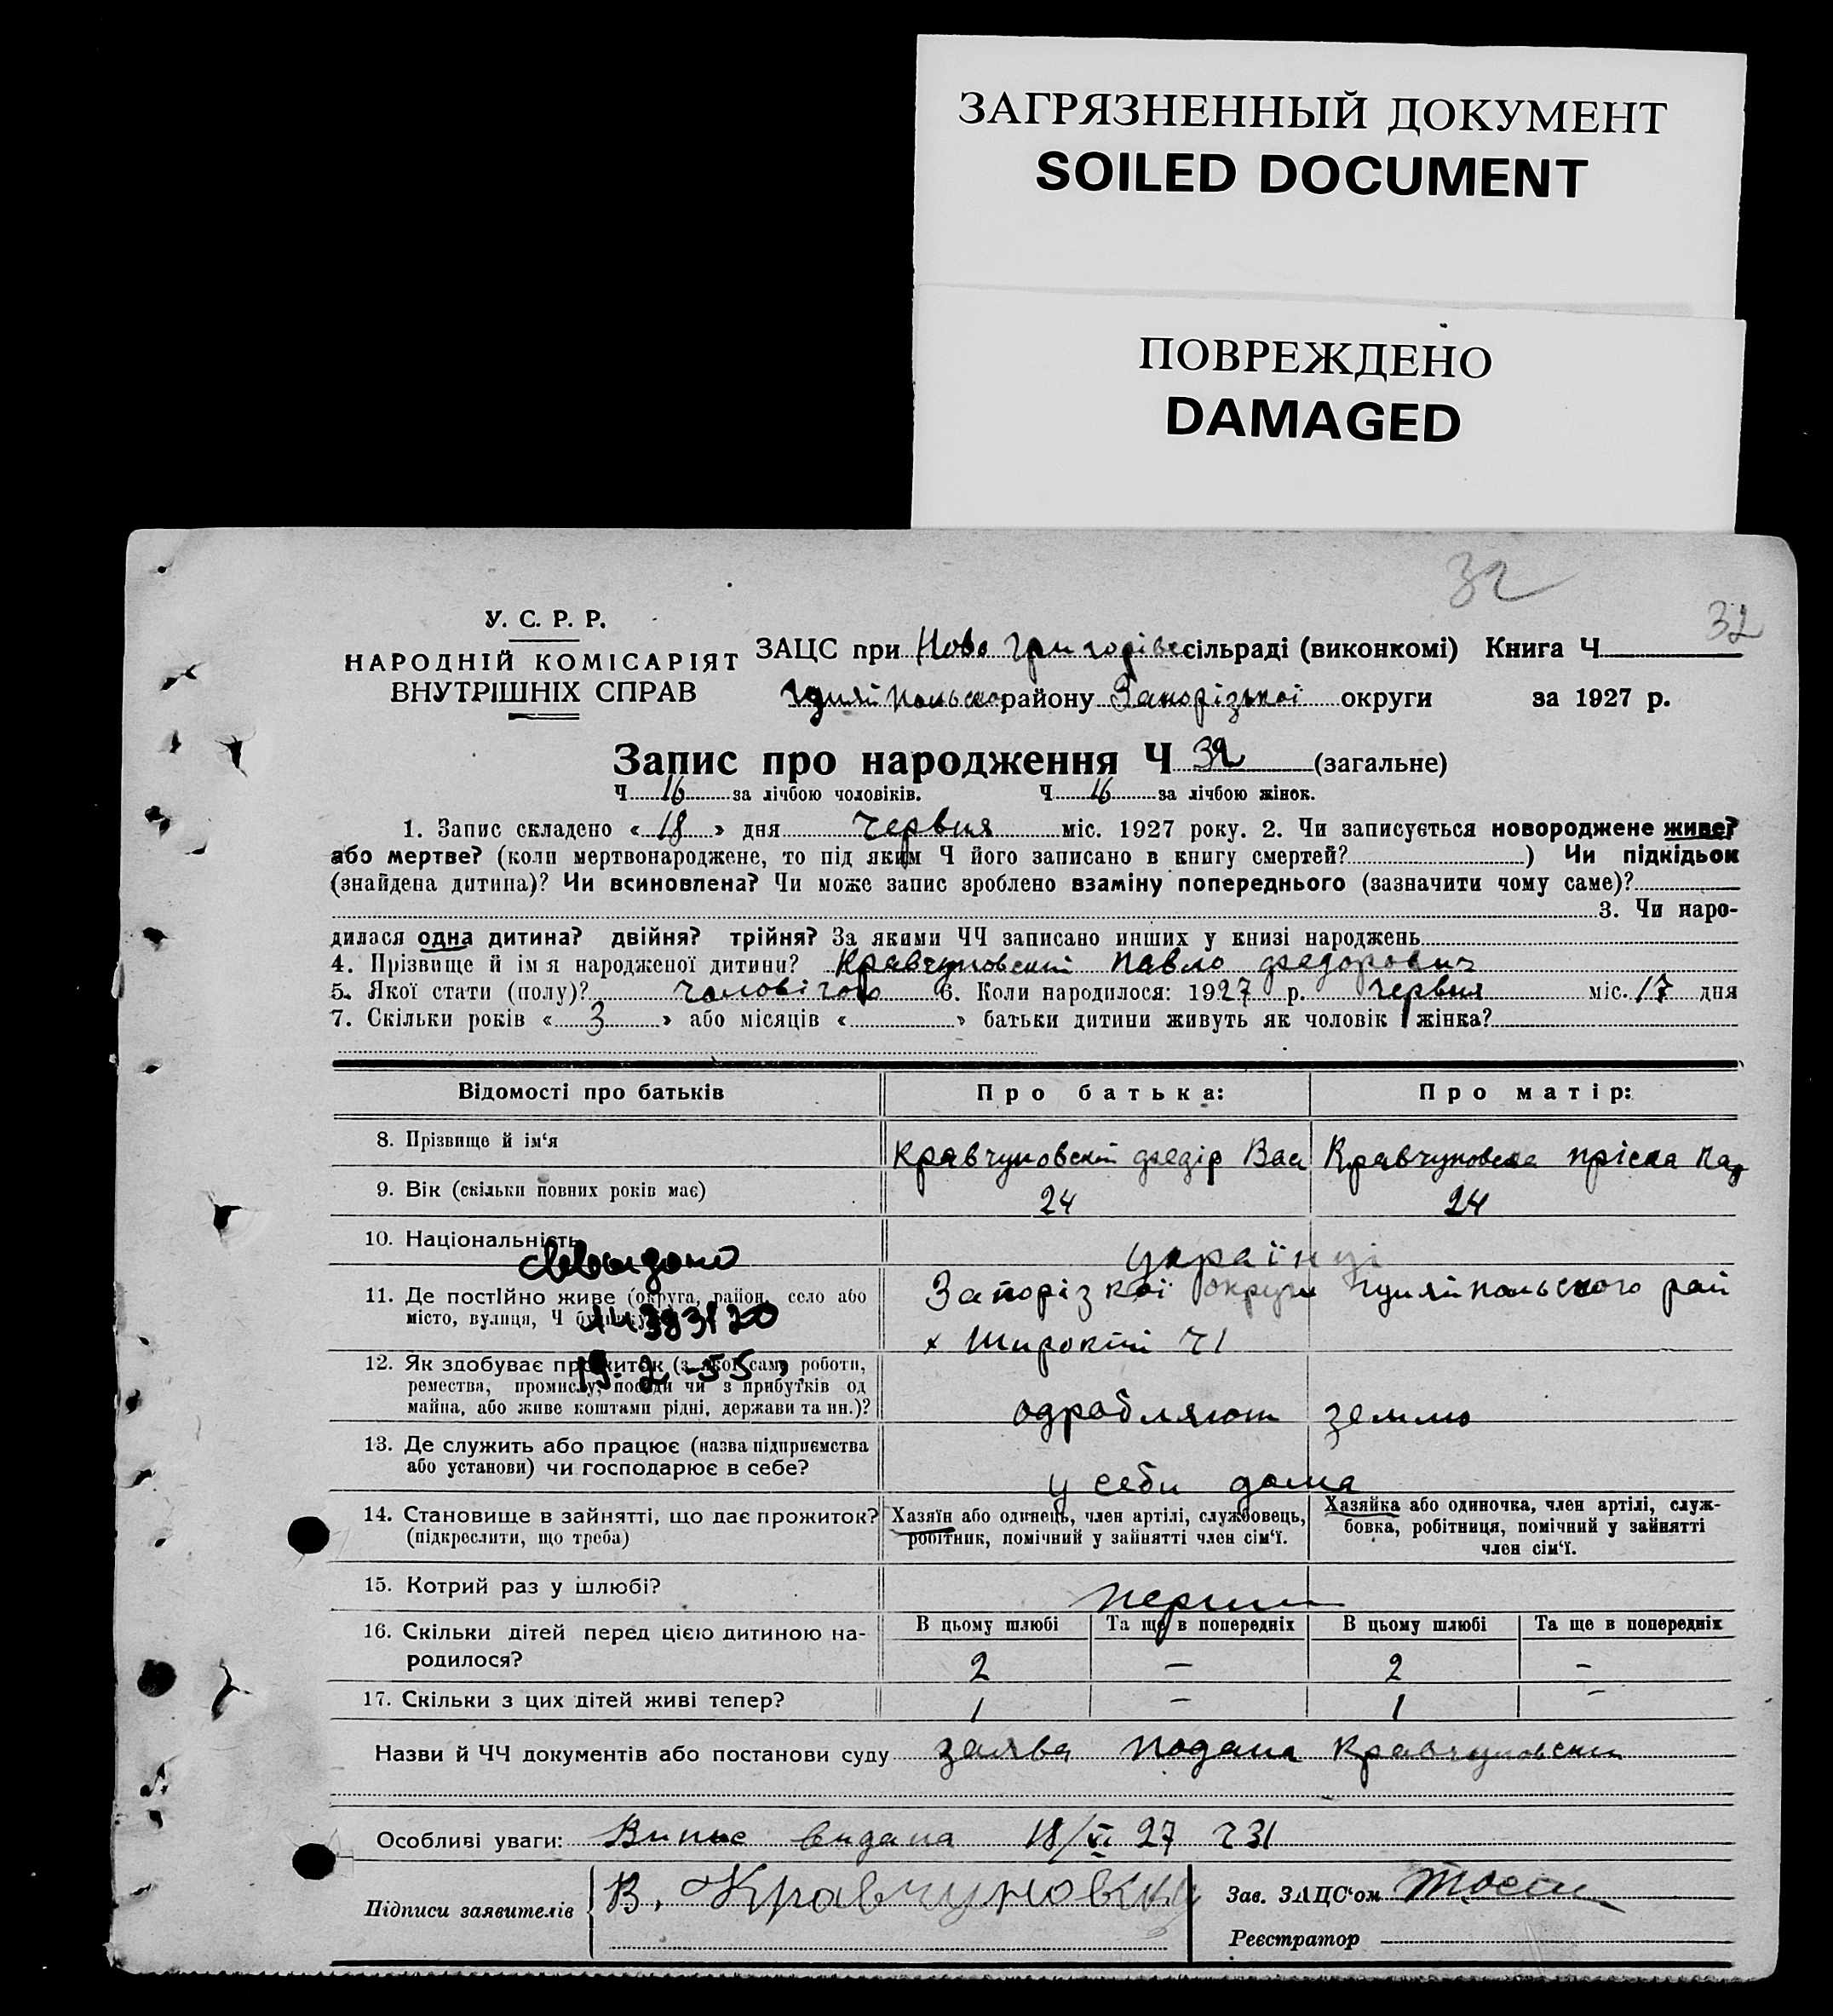 ЗАГРЯЗНЕННЫЙ ДОКУМЕНТ
SOILED DOCUMENT
ПОВРЕЖДЕНО
DAMAGED
32
32
У. С. Р. Р.
НАРОДНІЙ КОМІСАРІЯТ
ВНУТРІШНІХ СПРАВ
ЗАЦС при Ново Григорівс сільраді (виконкомі) Книга Ч
Гуляйпольсько району Запорізької округи за 1927 р.
Запис про народження Ч 32 (загальне)
Ч 16 за лічбою чоловіків. Ч 16 за лічбою жінок.
1. Запис складено « 18 » дня червня міс. 1927 року. 2. Чи записується новороджене живе?
або мертве? (коли мертвонароджене, то під яким Ч його записано в книгу смертей? ) Чи підкідьок
(знайдена дитина)? Чи всиновлена? Чи може запис зроблено взаміну попереднього (зазначити чому саме)?
3. Чи наро-
дилася одна дитина? двійня? трійня? За якими ЧЧ записано инших у книзі народжень
4. Прізвище й ім я народженої дитини? Кравчуновский Павло Федорович
5. Якої стати (полу)? чоловічого 6. Коли народилося: 1927 р. червня міс. 17 дня
7. Скільки років « 3 » або місяців « » батьки дитини живуть як чоловік і жінка?
Відомості про батьків Про батька: Про матір:
8. Прізвище й ім‘я Кравчуновский Федір Вас Кравчуновска Пріска
9. Вік (скільки повних років має) 24 24
10. Національність українці
11. Де постійно живе (округа, район, село або Запорізкої округи Гуляйпольського рай
місто, вулиця, Ч х Широкий Ч1
19.2-55
12. Як здобуває прожиток (з якої саме роботи,
ремества, промислу, посади чи з прибутків од
майна, або живе коштами рідні, держави та ин.)? одробляют землю
13. Де служить або працює (назва підприємства
або установи) чи господарює в себе? у себи дома
14. Становище в зайнятті, що дає прожиток? Хазяїн або одинець, член артілі, службовець, Хазяйка або одиночка, член артілі, служ-
(підкреслити, що треба) робітник, помічний у зайнятті член сім‘ї. бовка, робітниця, помічний у зайнятті
член сім‘ї.
15. Котрий раз у шлюбі? перши
16. Скільки дітей перед цією дитиною на- В цьому шлюбі Та ще в попередніх В цьому шлюбі Та ще в попередніх
родилося? 2 — 2 —
17. Скільки з цих дітей живі тепер? 1 — 1 —
Назви й ЧЧ документів або постанови суду заява подана Кравчуновским
Особливі уваги: Випис видана 18/VI 27 Ч 31
Підписи заявителів В. Кравчуновкий Зав. ЗАЦС‘ом
Реєстратор